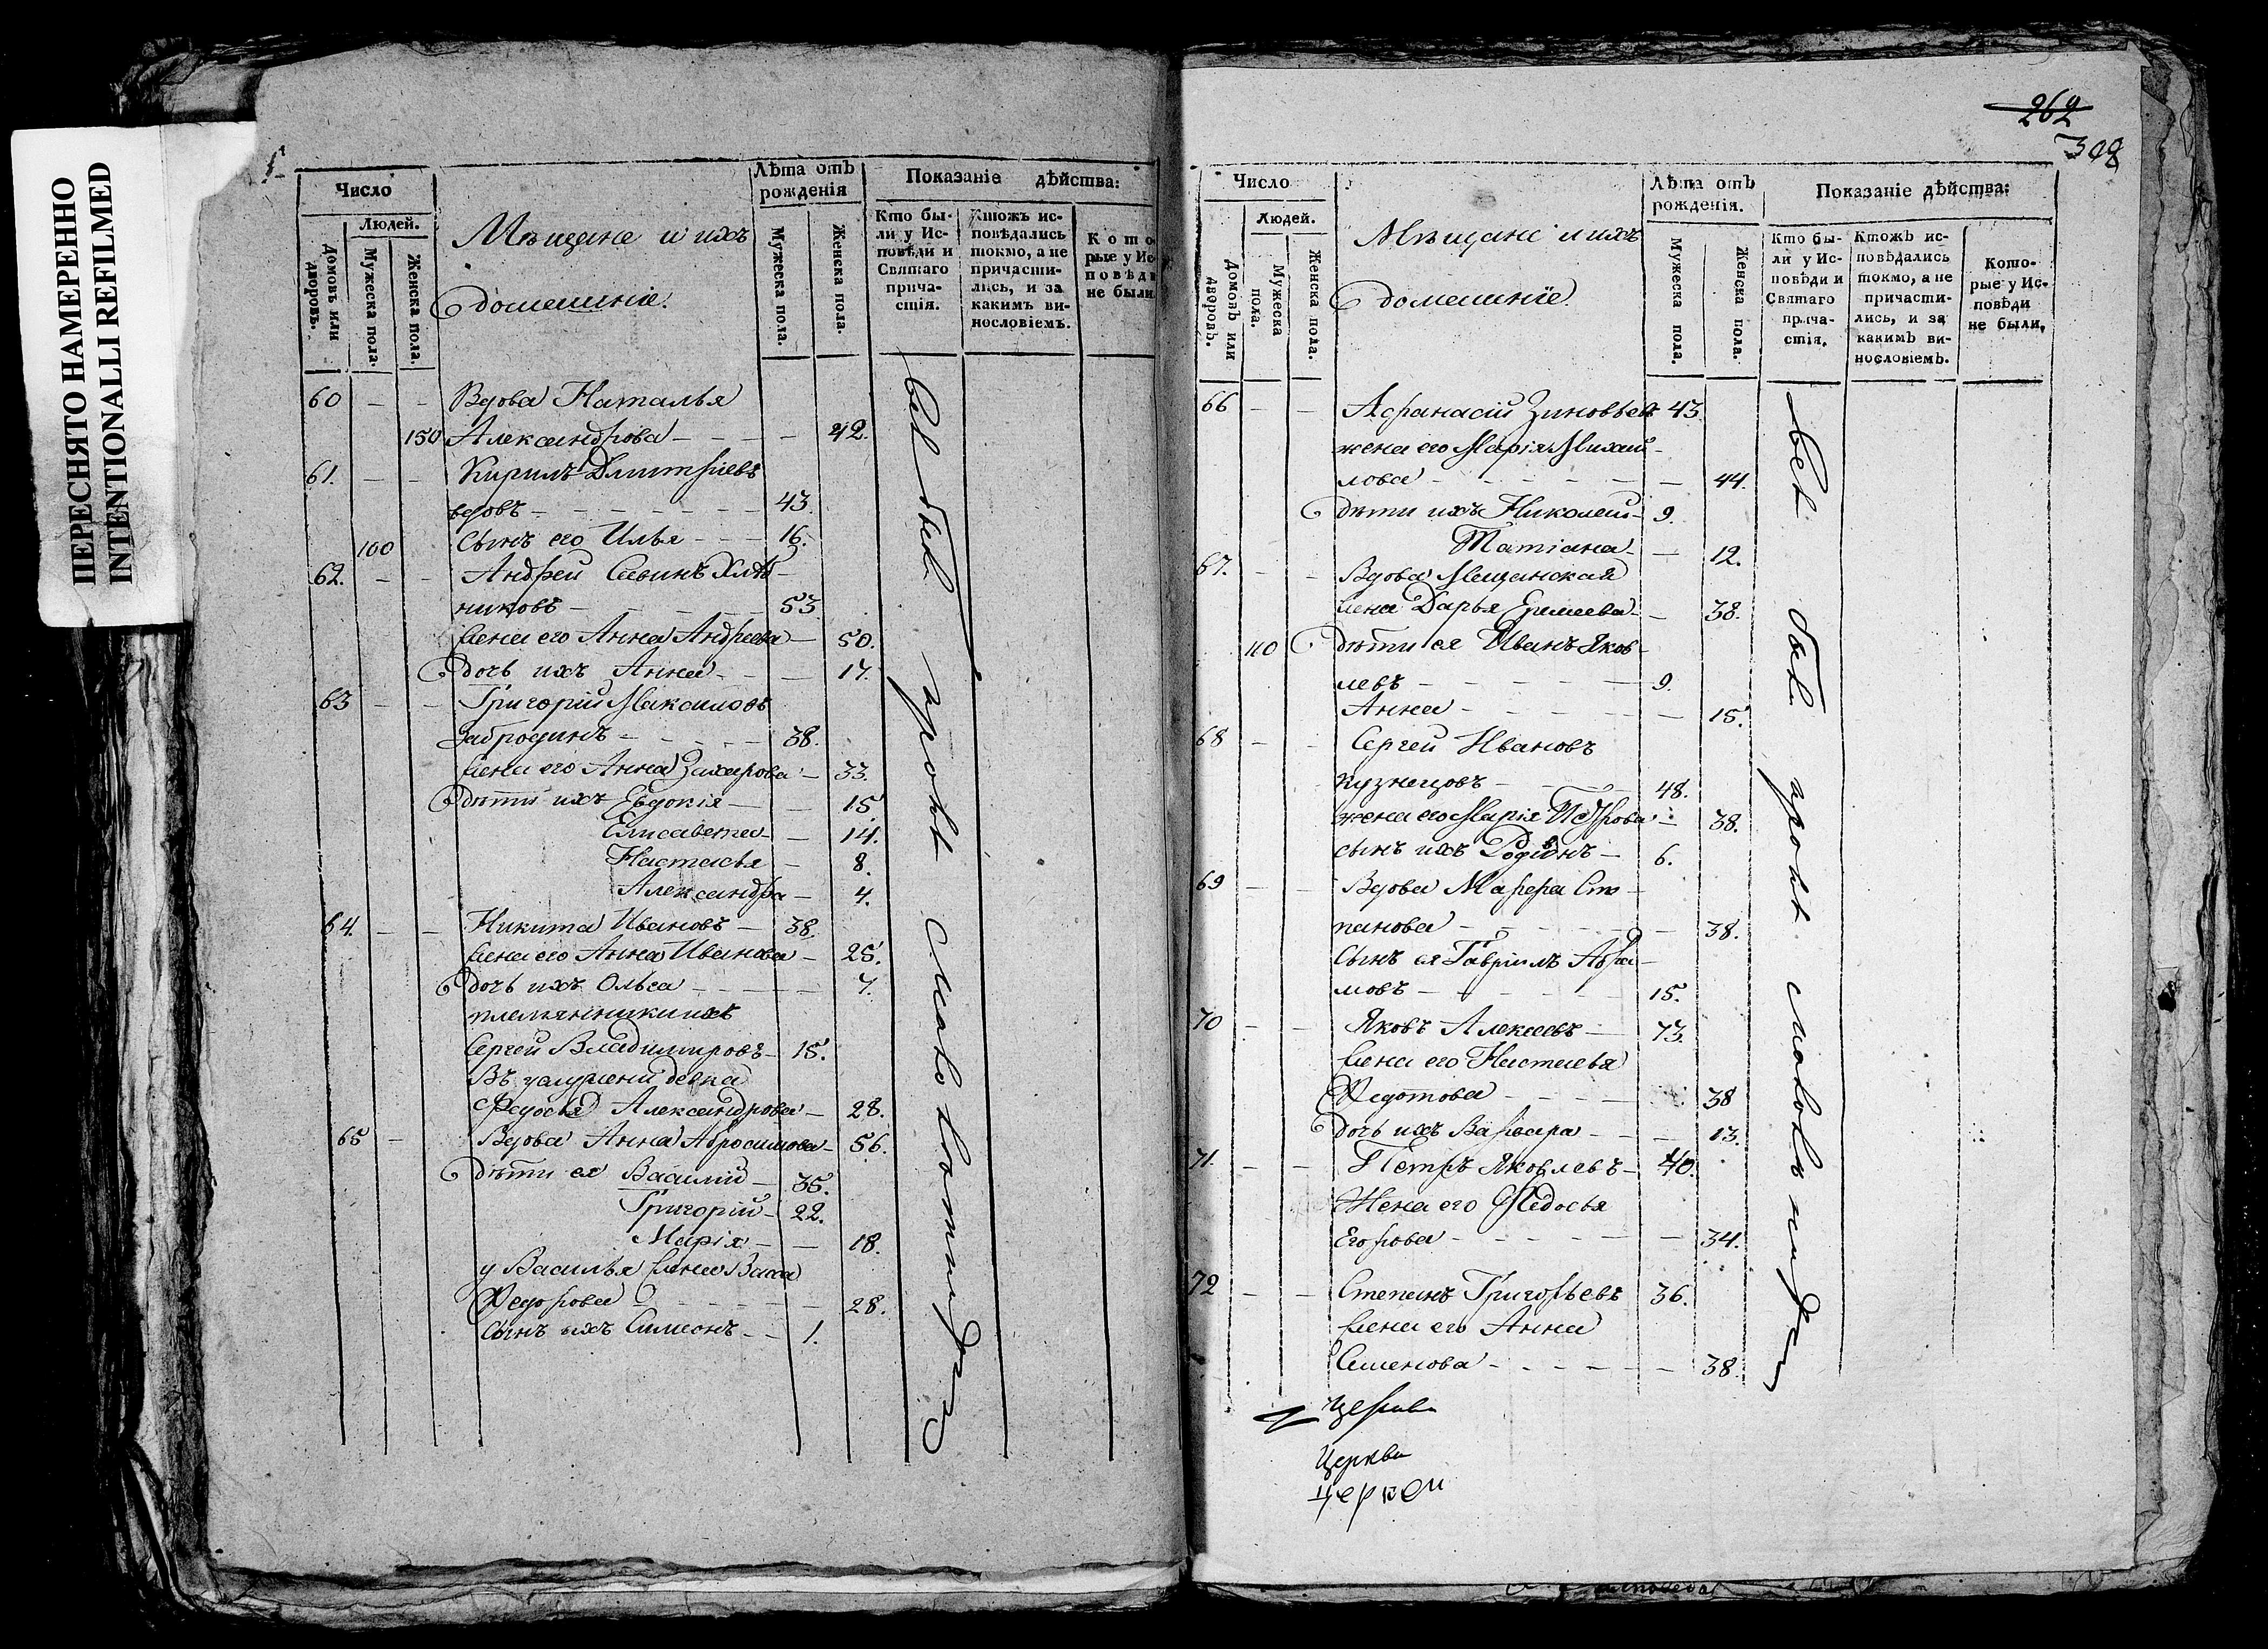 ПЕРЕСНЯТО НАМЕРЕННО
INTENTIONALLI REFILMED
Число
Людей.
Домовъ или дворовъ.
Мужеска пола.
Женска пола.
Мѣщане и ихъ
домашніе.
Лѣта отъ
рожденія
Мужеска пола.
Женска пола.
Показаніе дѣйства:
Кто бы-
ли у Ис-
повѣди и
Святаго
прича-
стія.
Ктожъ ис-
повѣдались
токмо, а не
причасти-
лись, и за
какимъ ви-
нословіемъ.
Кото
рые у Ис
повѣди
не были
60 — — Вдова Наталья
150 Александрова — 42.
61. — — Кирилъ Дмитріевъ
вдовъ — 43
100 Сынъ его Илья — 16.
62. — — Андрей Савинъ Хлѣб-
никовъ — 53
жена его Анна Андреева — 50.
дочь ихъ Анна — 17.
63 — — Григорій Максимовъ
Забродинъ — 38.
жена его Анна Захарова — 33.
дѣти ихъ Евдокія — 15.
Елисавета — 14.
Настасья — 8.
Александра — 4.
64. — — Никита Ивановъ — 38.
жена его Анна Иванова — 25.
дочь ихъ Ольга — 7.
племянники ихъ
Сергей Владимировъ — 15.
девка
Федосья Александрова — 28.
65 — Вдова Анна Абросимова — 56.
дѣти ея Василій — 35.
Григорій — 22.
Марія — 18.
у Василья жена Васса
Федорова — 28.
Сынъ ихъ Симеонъ — 1.
всѣ были кромѣ
262
308
Число
Людей.
Домовъ или дворовъ.
Мужеска пола.
Женска пола.
Мѣщане и ихъ
домашніе.
Лѣта отъ
рожденія.
Мужеска пола.
Женска пола.
Показаніе дѣйства:
Кто бы-
ли у Ис-
повѣди и
Святаго
прича-
стія.
Ктожъ ис-
повѣдались
токмо, а не
причасти-
лись, и за
какимъ ви-
нословіемъ.
Кото-
рые у Ис-
повѣди
не были.
66 — — Афанасій Зиновьевъ 43.
жена его Марія Михай-
лова — 44.
дѣти ихъ Николай — 9.
Татіана — 12.
67. — — Вдова Мещанская
жена Дарья Ермеева — 38.
110 дѣти ея Иванъ Яков-
левъ — 9.
Анна — 15.
68 — — Сергей Ивановъ
Кузнецовъ — 48.
жена его Марія Петрова — 38.
сынъ ихъ Родіонъ — 6.
69 — — Вдова Марфа Сте-
панова — 38.
Сынъ ея Гавріилъ Абра-
мовъ — 15.
70 — — Яковъ Алексеевъ — 73.
жена его Настасья
Федотова — 38
дочь ихъ Варвара — 13.
71. — — Петръ Яковлевъ — 40.
Жена его Федосья
Егорова — 34.
72 — — Степанъ Григорьевъ 36.
жена его Анна
Семенова — 38.
всѣ были кромѣ
церкви
Церкви
церкви